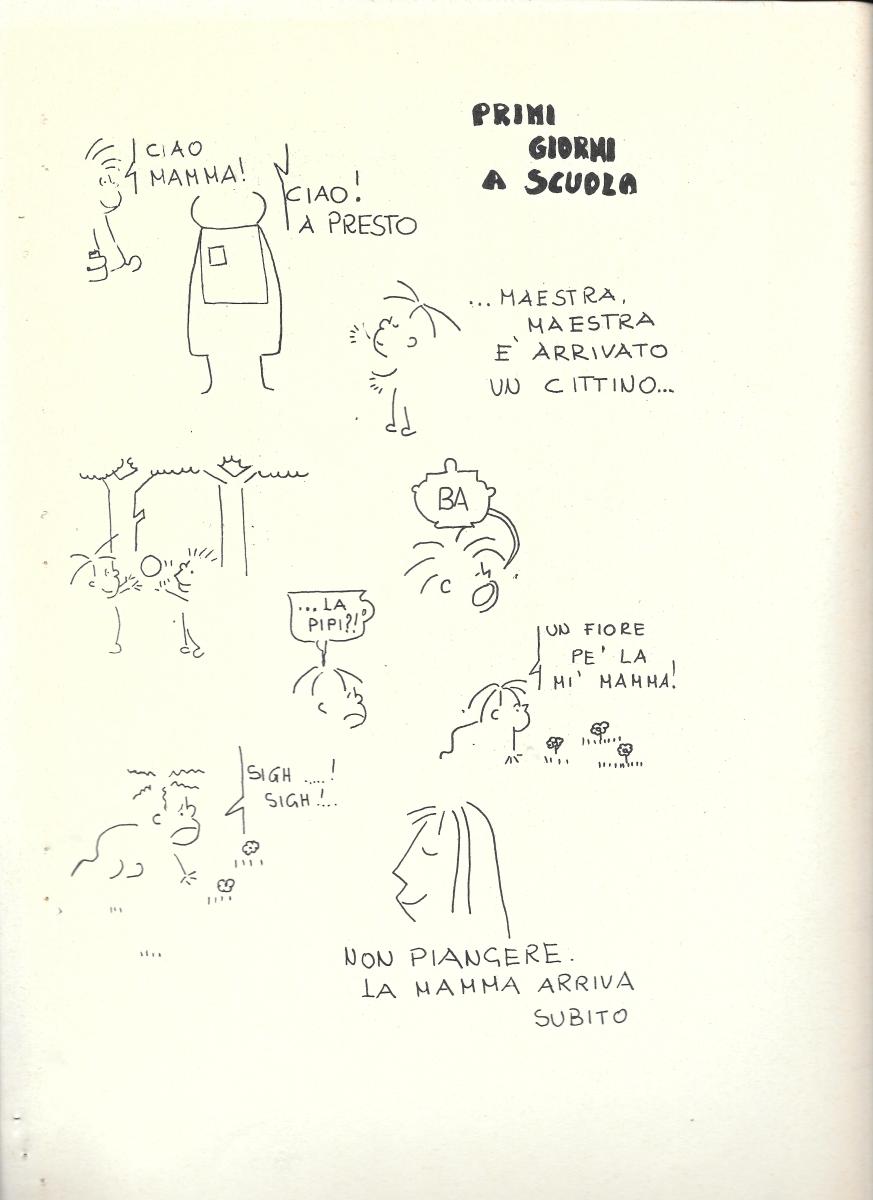 PRIMI
GIORNI
A SCUOLA
CIAO
MAMMA!
CIAO!
A PRESTO
...MAESTRA,
MAESTRA
E' ARRIVATO
UN CITTINO...
BA
...LA
PIPI?!
UN FIORE
PE' LA
MI' MAMMA!
SIGH .....!
SIGH !...
NON PIANGERE.
LA MAMMA ARRIVA
SUBITO